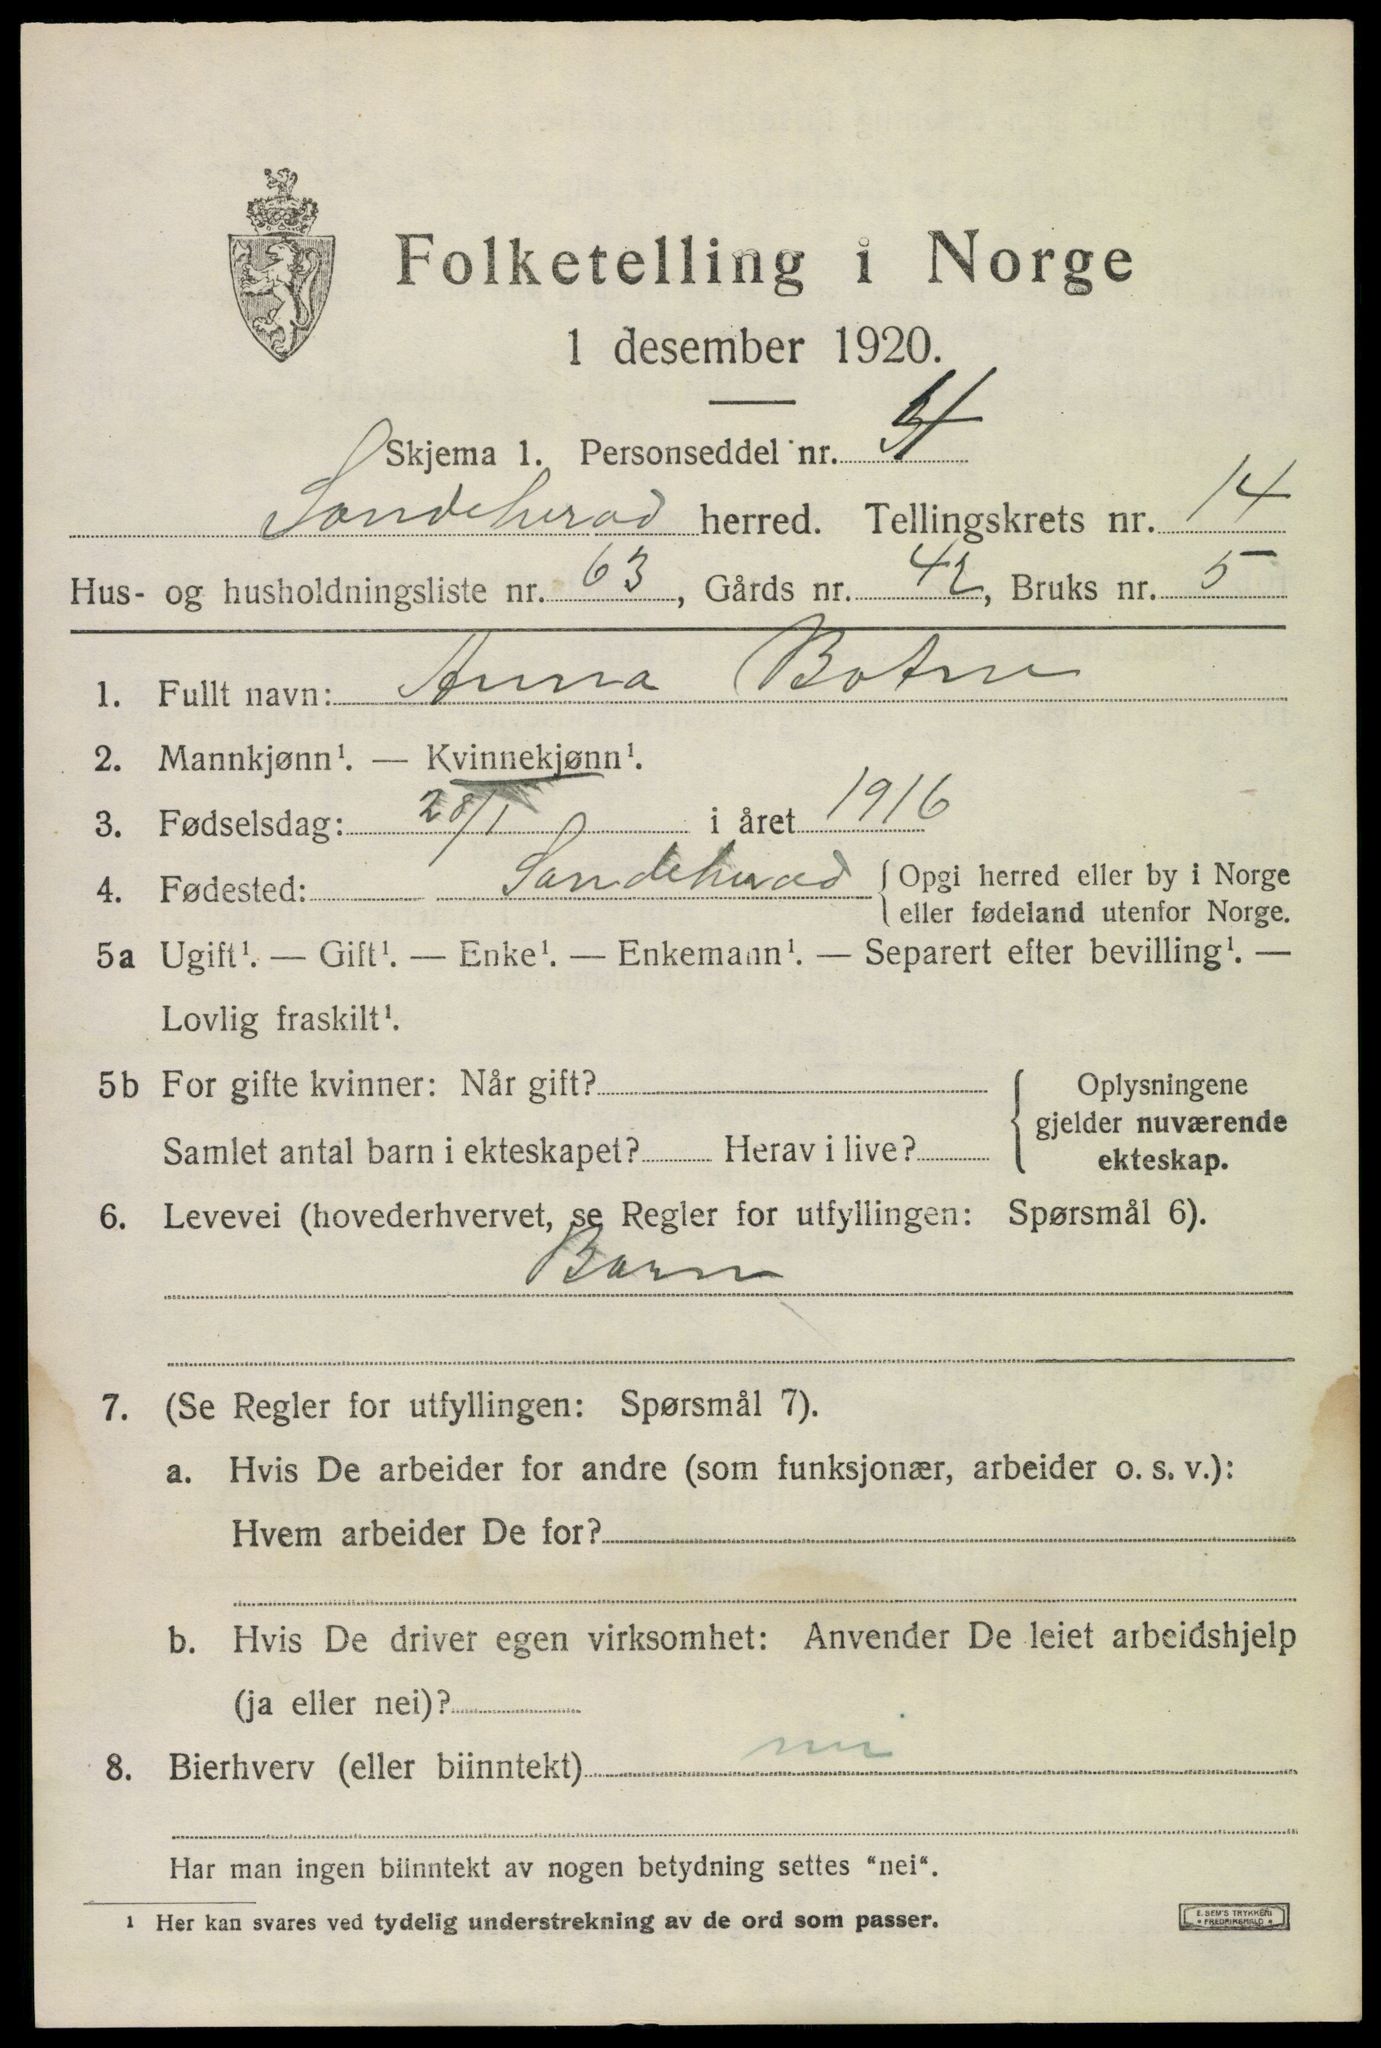 Folketelling i Norge
1 desember 1920.
Skjema 1. Personseddel nr. 4
Sandeherad herred. Tellingskrets nr. 14
Hus- og husholdningsliste nr. 63, Gårds nr. 42, Bruks nr. 5
1. Fullt navn: Anna Botne
2. Mannkjønn¹. — Kvinnekjønn¹.
3. Fødselsdag: 28/1 i året 1916
4. Fødested: Sandeherad { Opgi herred eller by i Norge
eller fødeland utenfor Norge.
5a Ugift¹. — Gift¹. — Enke¹. — Enkemann¹. — Separert efter bevilling¹. —
Lovlig fraskilt¹.
5b For gifte kvinner: Når gift?
Samlet antal barn i ekteskapet? Herav i live?
Oplysningene
gjelder nuværende
ekteskap.
6. Levevei (hovederhvervet, se Regler for utfyllingen: Spørsmål 6).
Barn
7. (Se Regler for utfyllingen: Spørsmål 7).
a. Hvis De arbeider for andre (som funksjonær, arbeider o. s. v.):
Hvem arbeider De for?
b. Hvis De driver egen virksomhet: Anvender De leiet arbeidshjelp
(ja eller nei)?
8. Bierhverv (eller biinntekt) nei
Har man ingen biinntekt av nogen betydning settes "nei".
¹ Her kan svares ved tydelig understrekning av de ord som passer.
E. SEM'S TRYKKERI
* FREDRIKSHALD *